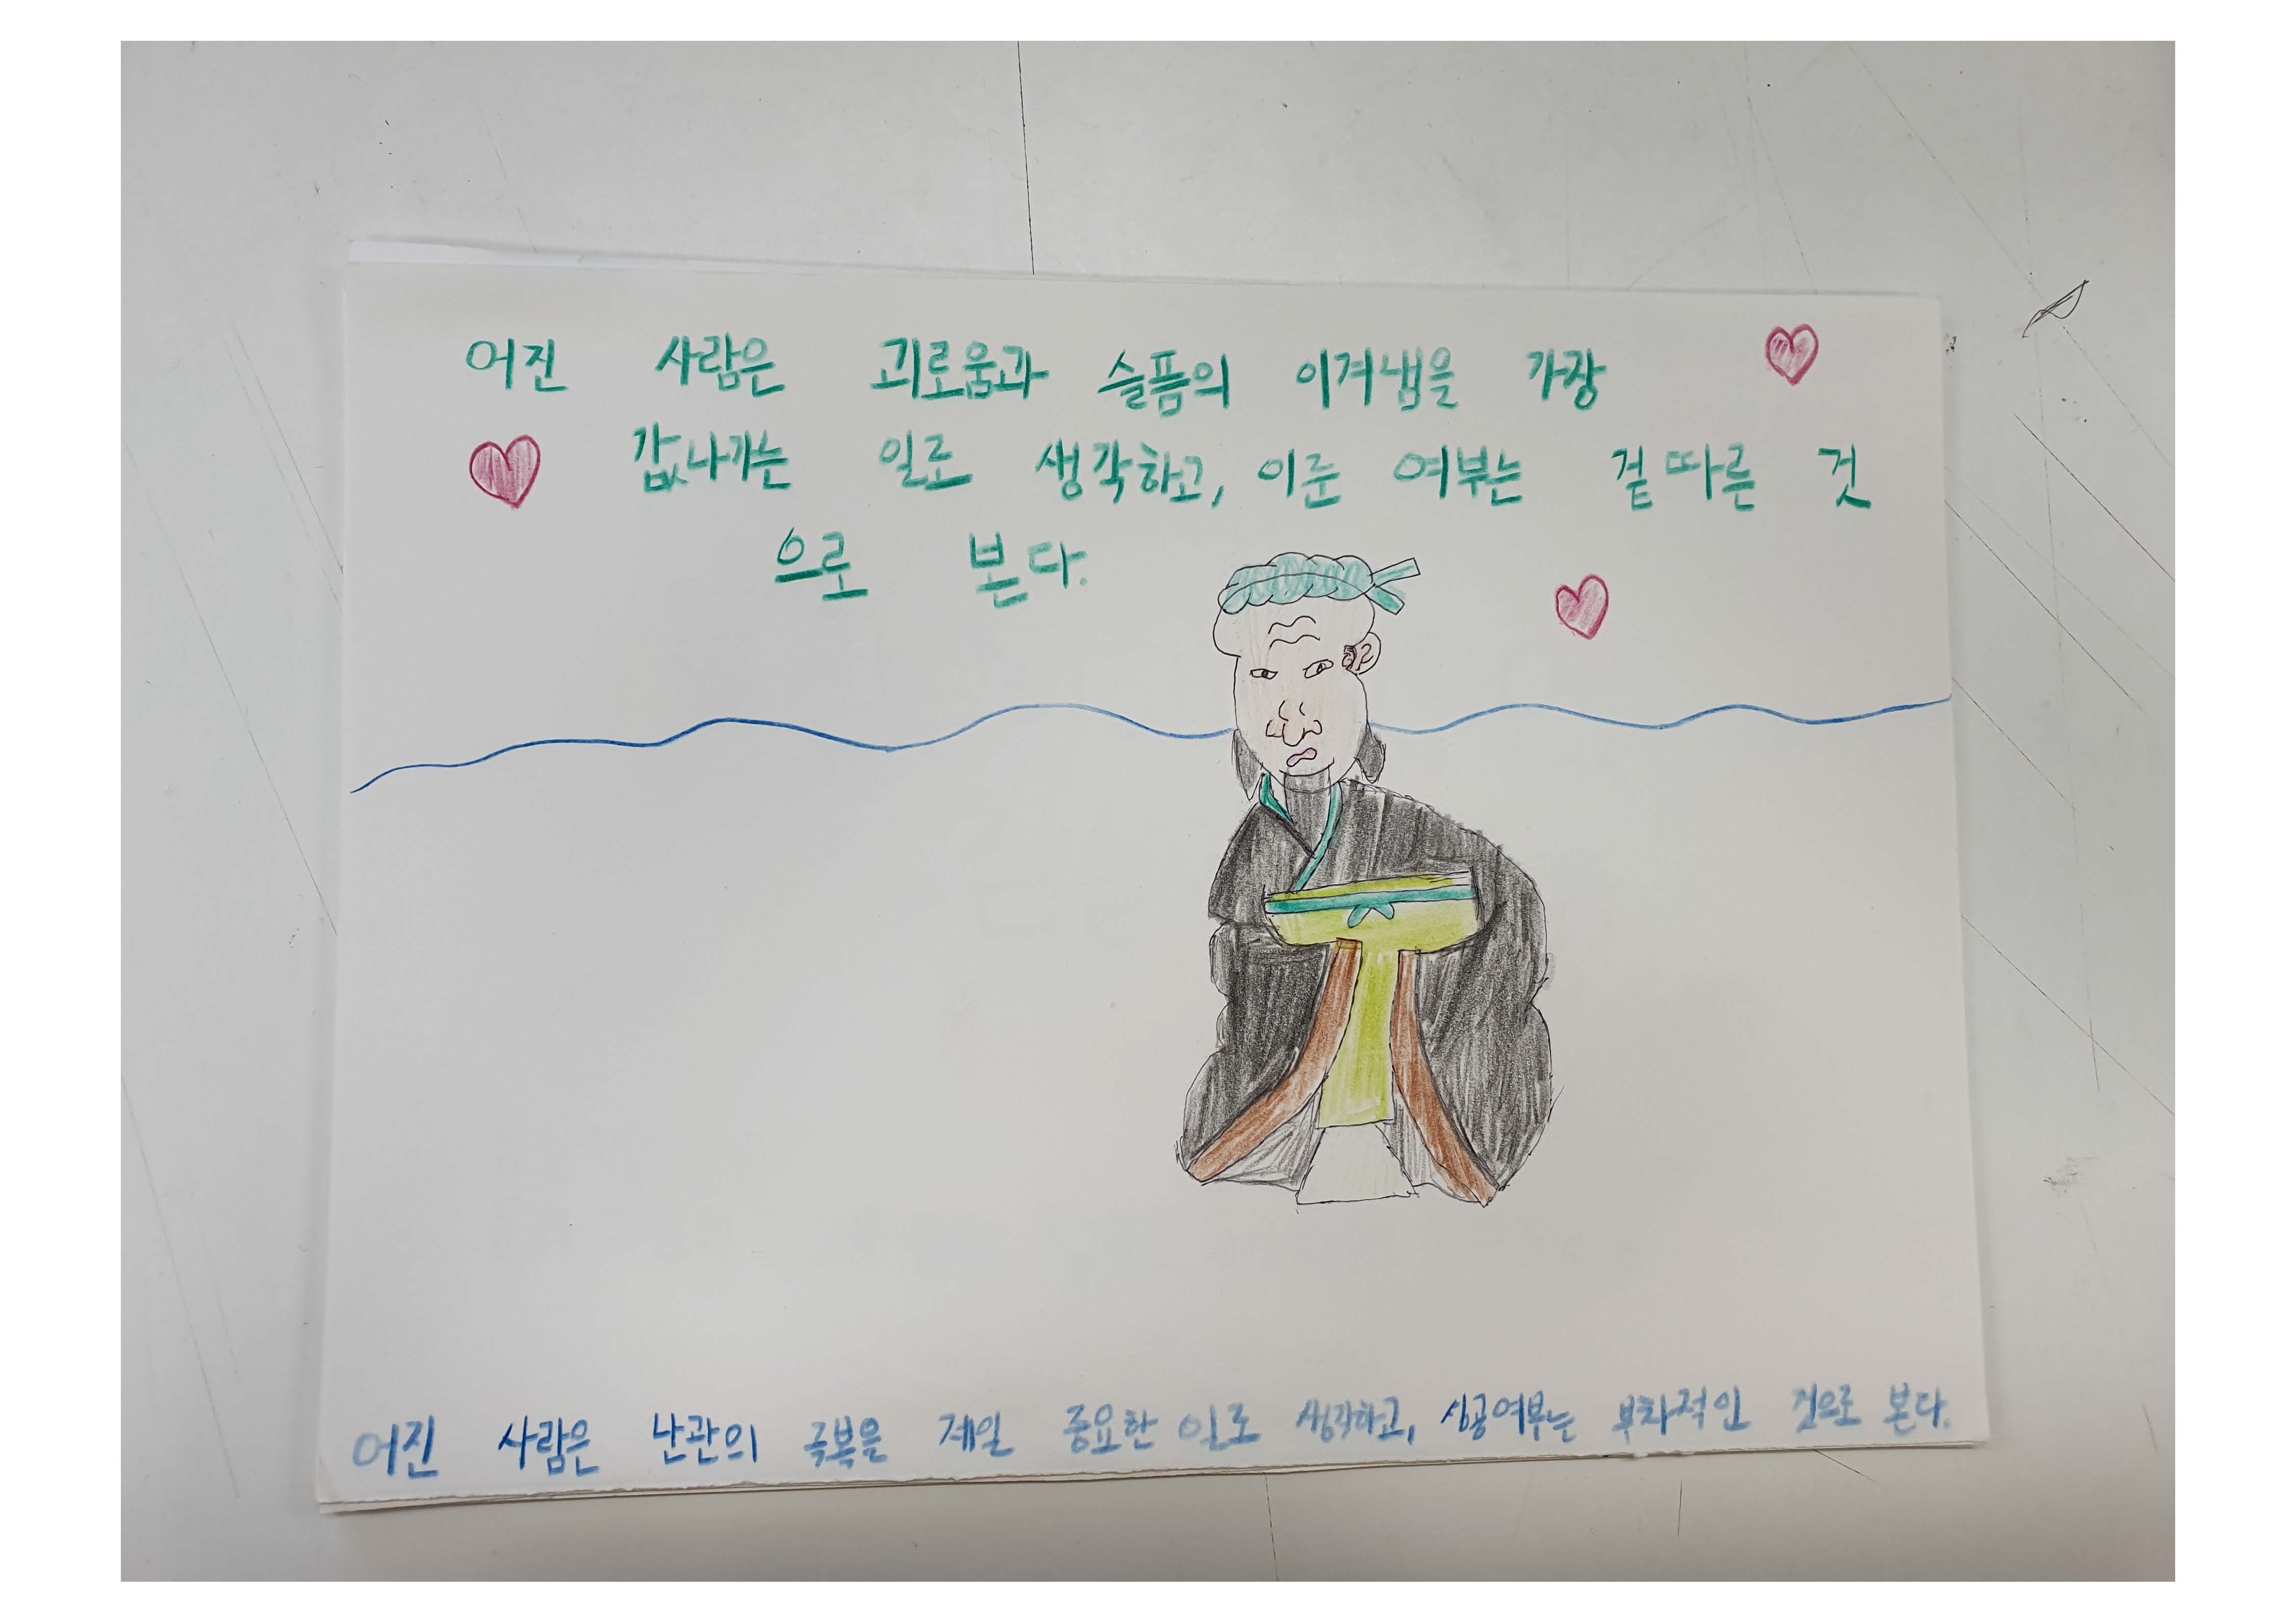 어진 사람은 괴로움과 슬픔의 이겨냄을 가장
값나가는 일로 생각하고, 이룬 여부는 곁따른 것
으로 본다.
어진 사람은 난관의 극복을 제일 중요한 일로 생각하고, 성공여부는 부차적인 것으로 본다.